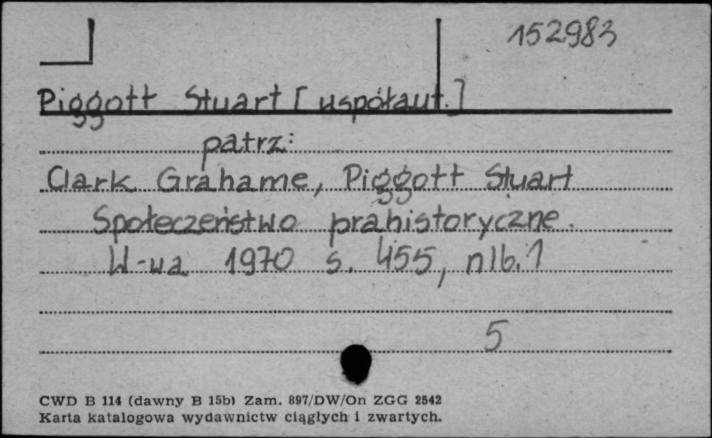 152983
Piggott Stuart [współaut.]
patrz:
Clark Grahame, Piggott Stuart
Społeczeństwo prahistoryczne.
W-wa 1970 s. 455, nlb. 1
5
CWD B 114 (dawny B 15b) Zam. 897/DW/On ZGG 2542
Karta katalogowa wydawnictw ciągłych i zwartych.